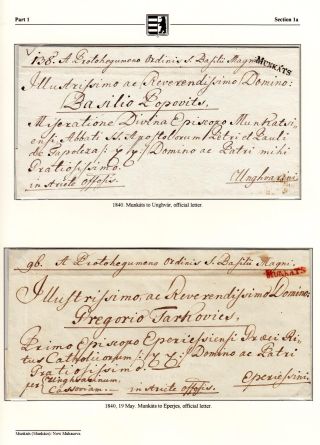 Part 1
Section 1a
138. A Protohegumeno Ordinis S. Basilii Magni
MUNKÁTS
Illustrissimo ac Reverendissimo Domino:
Basilio Popovits,
Miseratione Divina Episcopo Munkatsi-
ensi Abbati SS. Apostolorum Petri et Pauli
de Tapolcza: Domino ac Patri mihi
Gratiosissimo
in stricte Officiosis.
Unghvarini
1840. Munkáts to Unghvár, official letter.
98. A Protohegumeno Ordinis S. Basilii Magni.
MUNKÁTS
Illustrissimo, ac Reverendissimo Domino:
Gregorio Tarkovics,
Primo Episcopo Eperiessiensi Græci Ri-
tus Catholicorum: Domino ac Patri
Gratiosissimo
per Unghvarinum,
Cassoviam.
in stricte Officiosis.
Eperiessini.
1840, 19 May. Munkáts to Eperjes, official letter.
Munkáts (Munkács): Now Mukacevo.